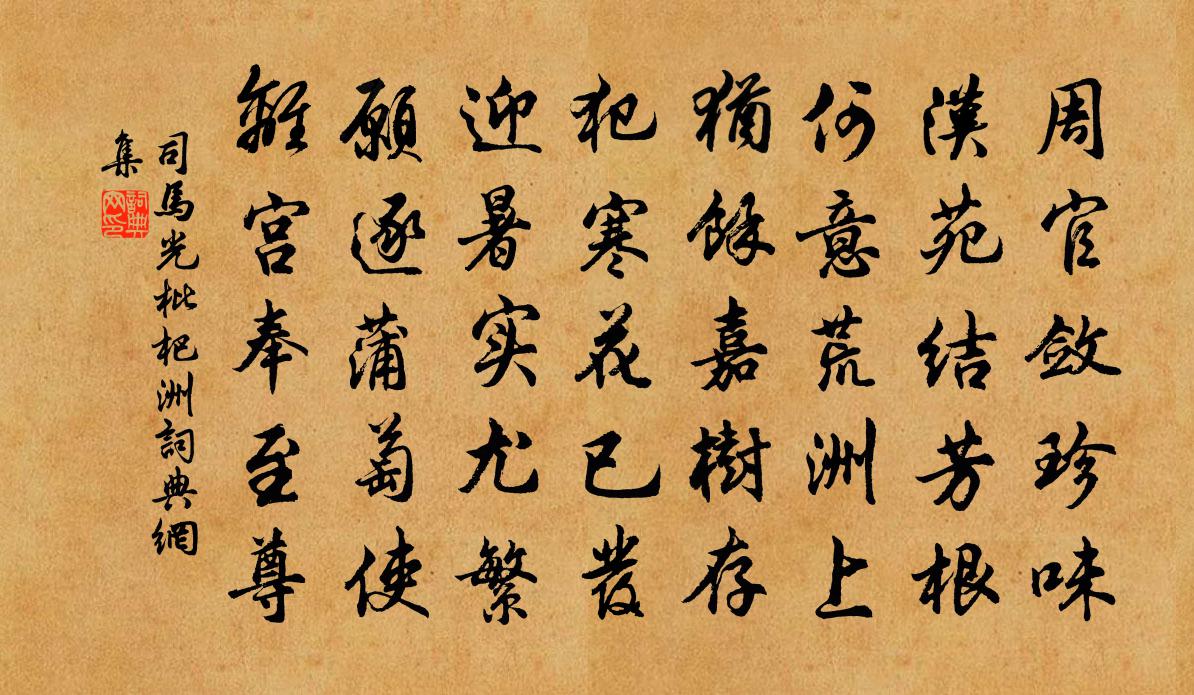 周官斂珍味
漢苑結芳根
何意荒洲上
猶餘嘉樹存
犯寒花已發
迎暑实尤繁
願逐蒲萄使
離宫奉至尊
司馬光枇杷洲詞典網
集
詞典网印